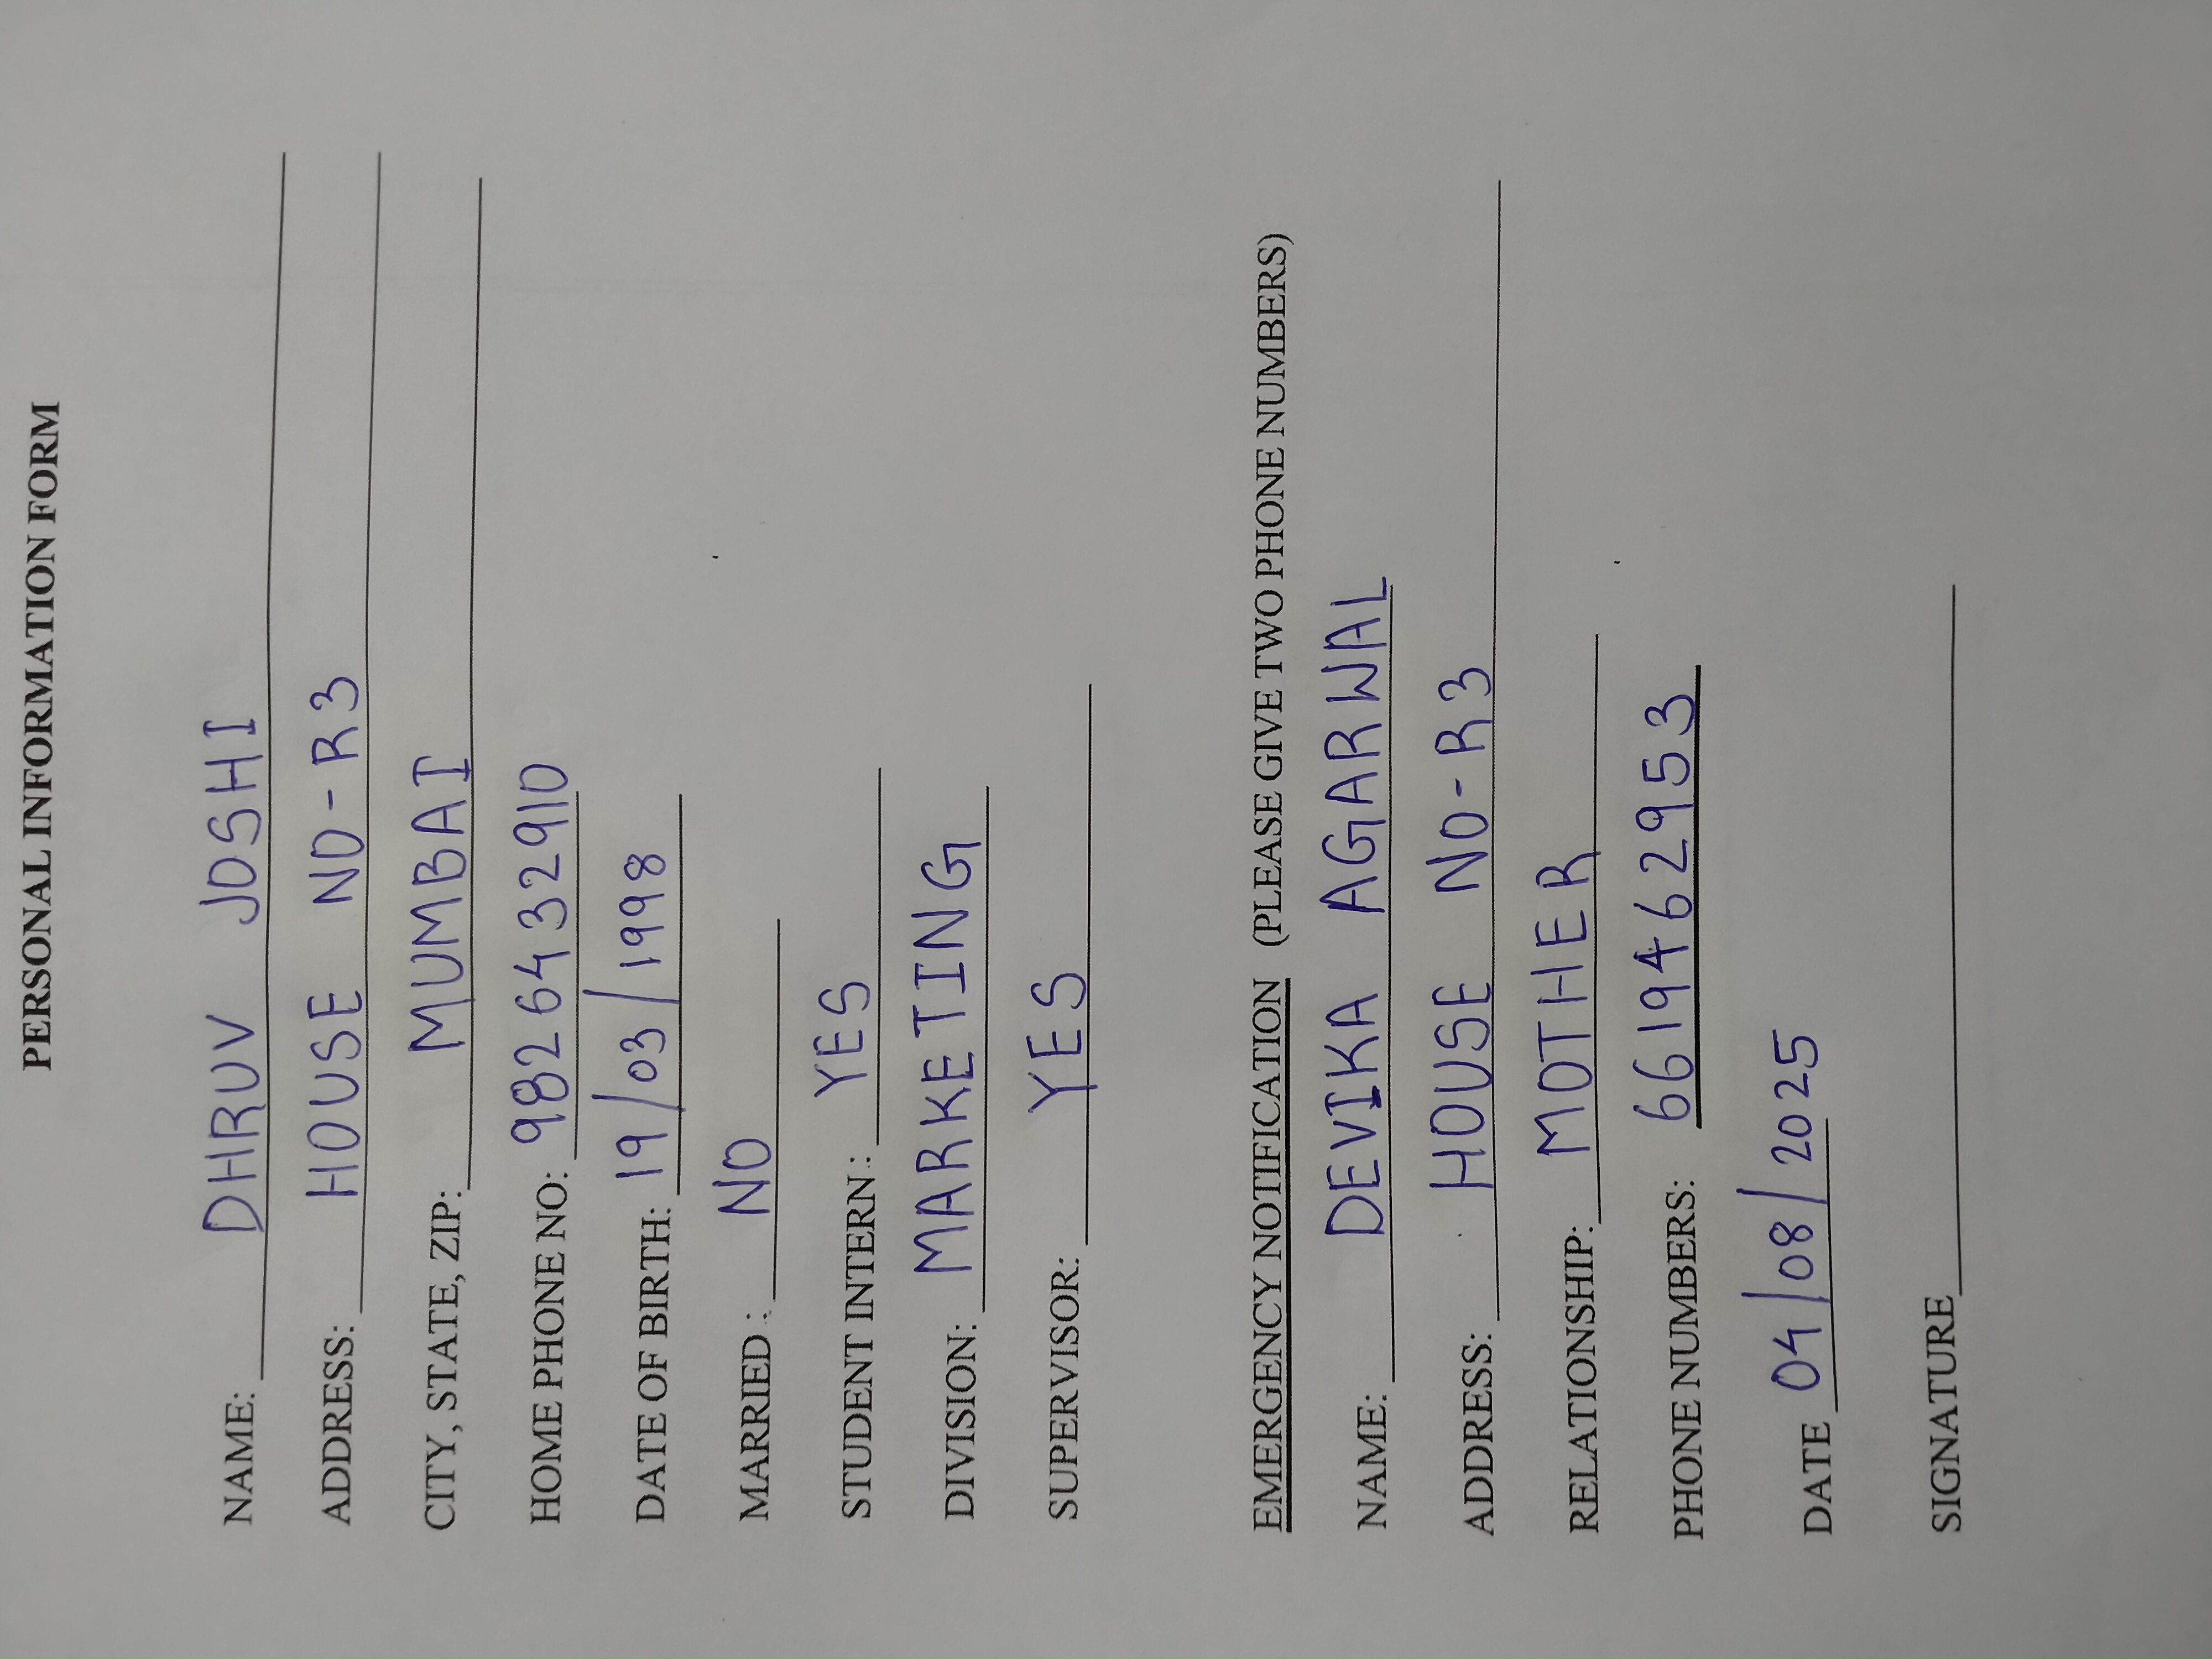 PERSONAL INFORMATION FORM
NAME: DHRUV JOSHI
ADDRESS: HOUSE NO-R3
CITY, STATE, ZIP: MUMBAI
HOME PHONE NO: 9826432910
DATE OF BIRTH: 19/03/1998
MARRIED : NO
STUDENT INTERN : YES
DIVISION: MARKETING
SUPERVISOR: YES
EMERGENCY NOTIFICATION (PLEASE GIVE TWO PHONE NUMBERS)
NAME: DEVIKA AGARWAL
ADDRESS: HOUSE NO-R3
RELATIONSHIP: MOTHER
PHONE NUMBERS: 6619462953
DATE 04/08/2025
SIGNATURE